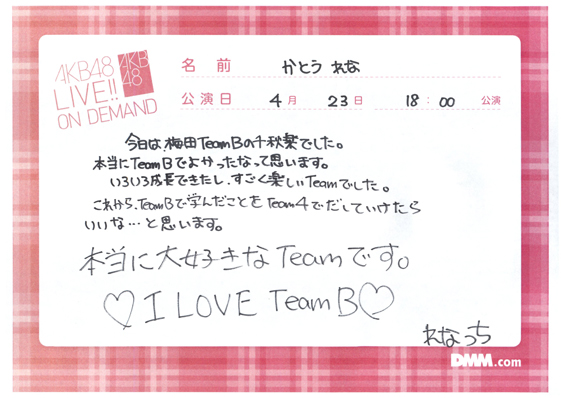 AKB48
LIVE!!
ON DEMAND
AKB
48
名前 かとう れな
公演日 4月 23日 18:00 公演
今日は、梅田TeamBの千秋楽でした。
本当にTeamBでよかったなって思います。
いろいろ成長できたし、すごく楽しいTeamでした。
これから、TeamBで学んだことをTeam4でだしていけたら
いいな…と思います。
本当に大好きなTeamです。
♡I LOVE TeamB♡
れなっち
DMM.com